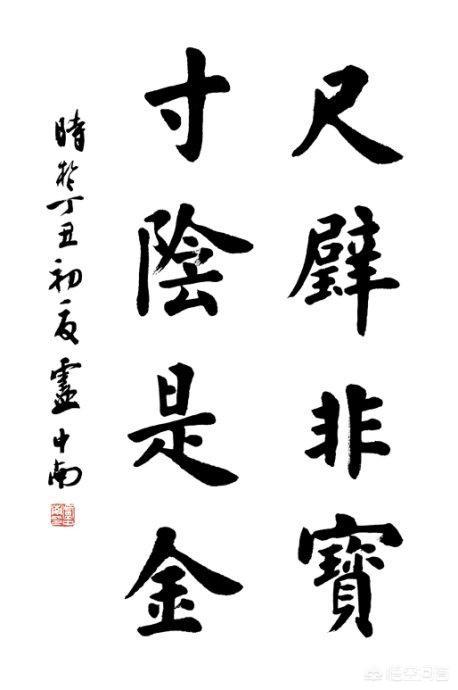 尺璧非寶
寸陰是金
時於丁丑初夏盧中南
悟空问答